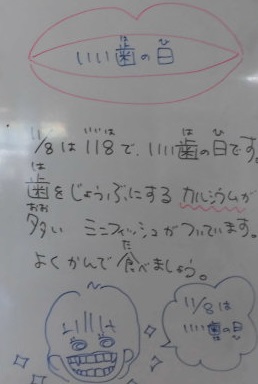 いい歯の日
11/8は118で、いい歯の日です。
歯をじょうぶにする カルシウムが
多い ミニフィッシュがついています。
よくかんで食べましょう。
11/8は
いい歯の日